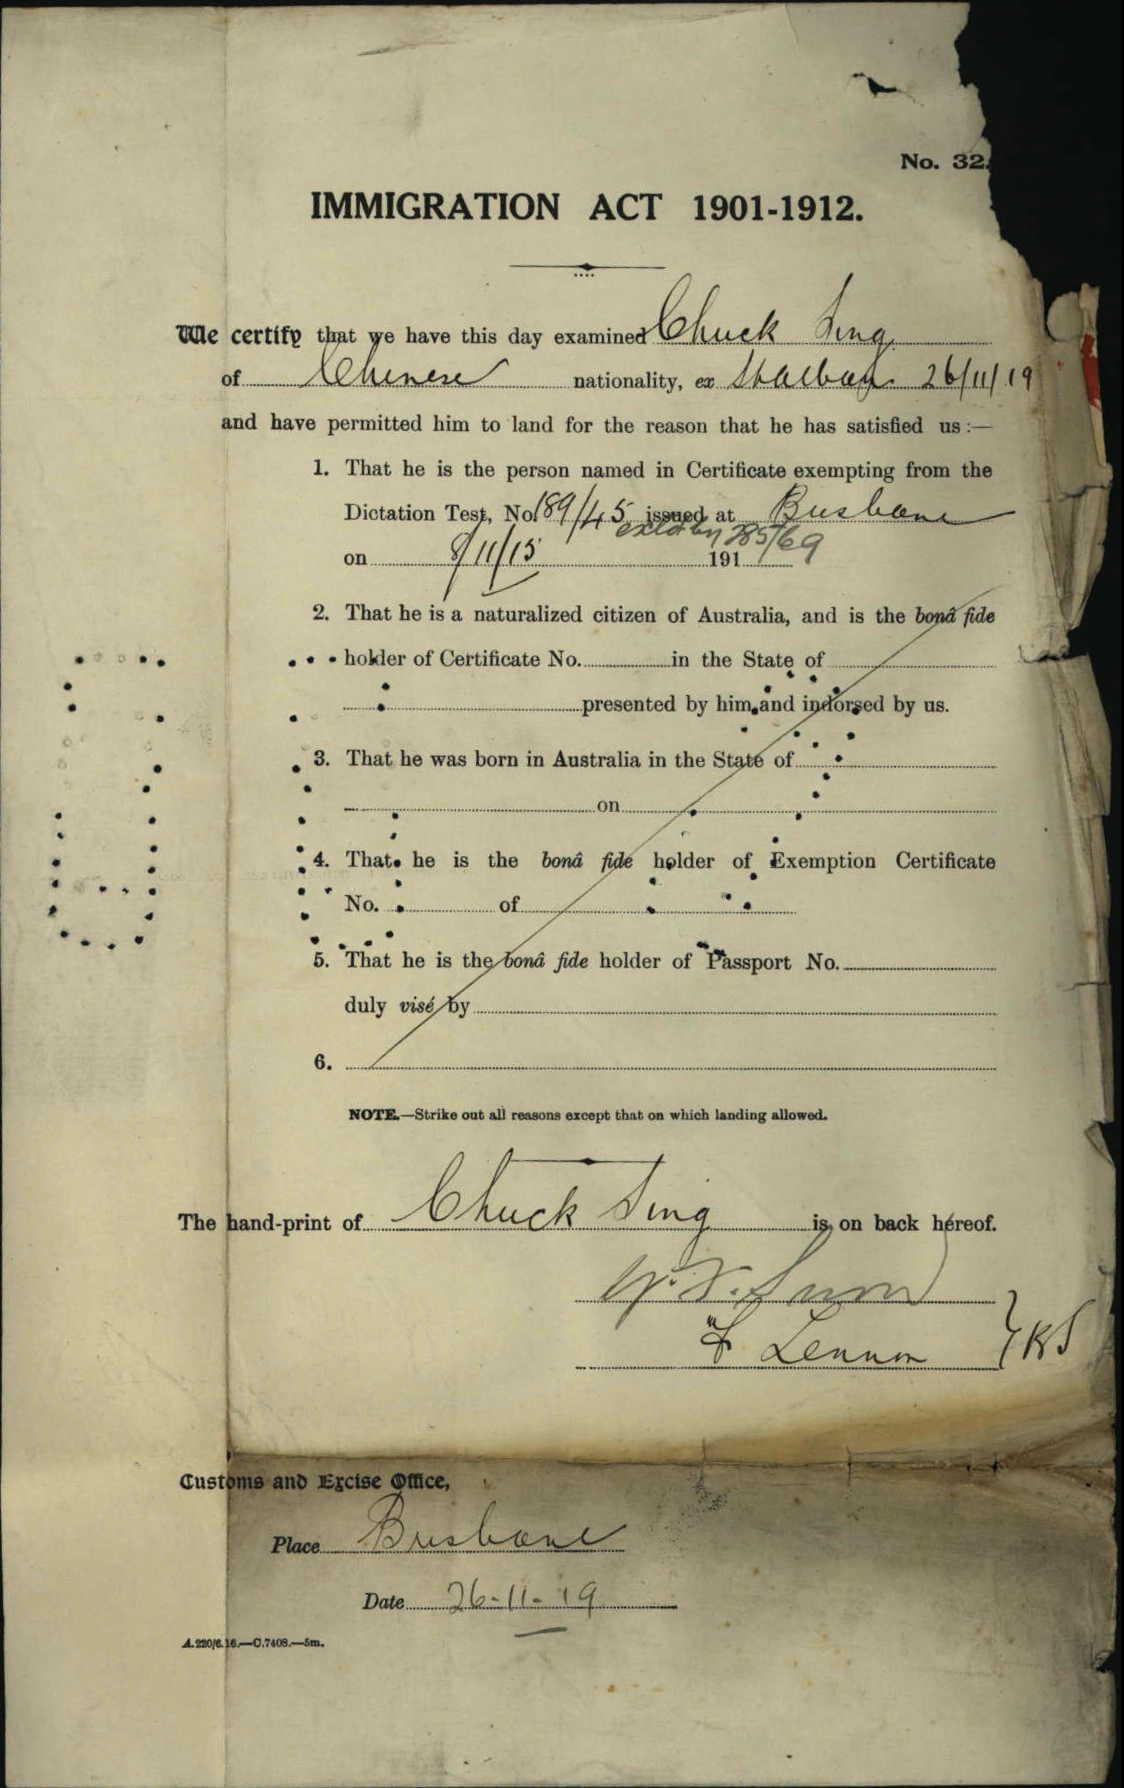 No. 32.
IMMIGRATION ACT 1901-1912.
We certify that we have this day examined Chuck Sing
of Chinese nationality, ex St Albans 26/11/19
and have permitted him to land for the reason that he has satisfied us :—
1. That he is the person named in Certificate exempting from the
Dictation Test, No. 189/45 issued at Brisbane
extd by 285/69
on 8/11/15 191
2. That he is a naturalized citizen of Australia, and is the bonâ fide
holder of Certificate No. in the State of
presented by him and indorsed by us.
3. That he was born in Australia in the State of
on
4. That he is the bonâ fide holder of Exemption Certificate
No. of
5. That he is the bonâ fide holder of Passport No.
duly visé by
6.
NOTE.—Strike out all reasons except that on which landing allowed.
The hand-print of Chuck Sing is on back hereof.
Lennon
Customs and Excise Office,
Place Brisbane
Date 26-11-19
A.220/6.16.—C.7408.—5m.